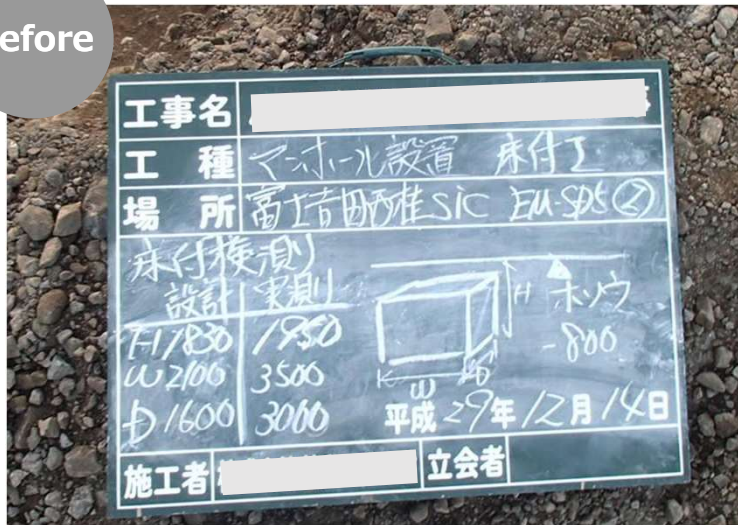 efore
工事名
工種 マンホール設置 床付工
場所 富士吉田西桂SIC EM-SD5②
床付検測
設計 実測
H 1830 1950
W 2100 3500
D 1600 3000
H
W
D
ホソウ
-800
平成29年12月14日
施工者
立会者